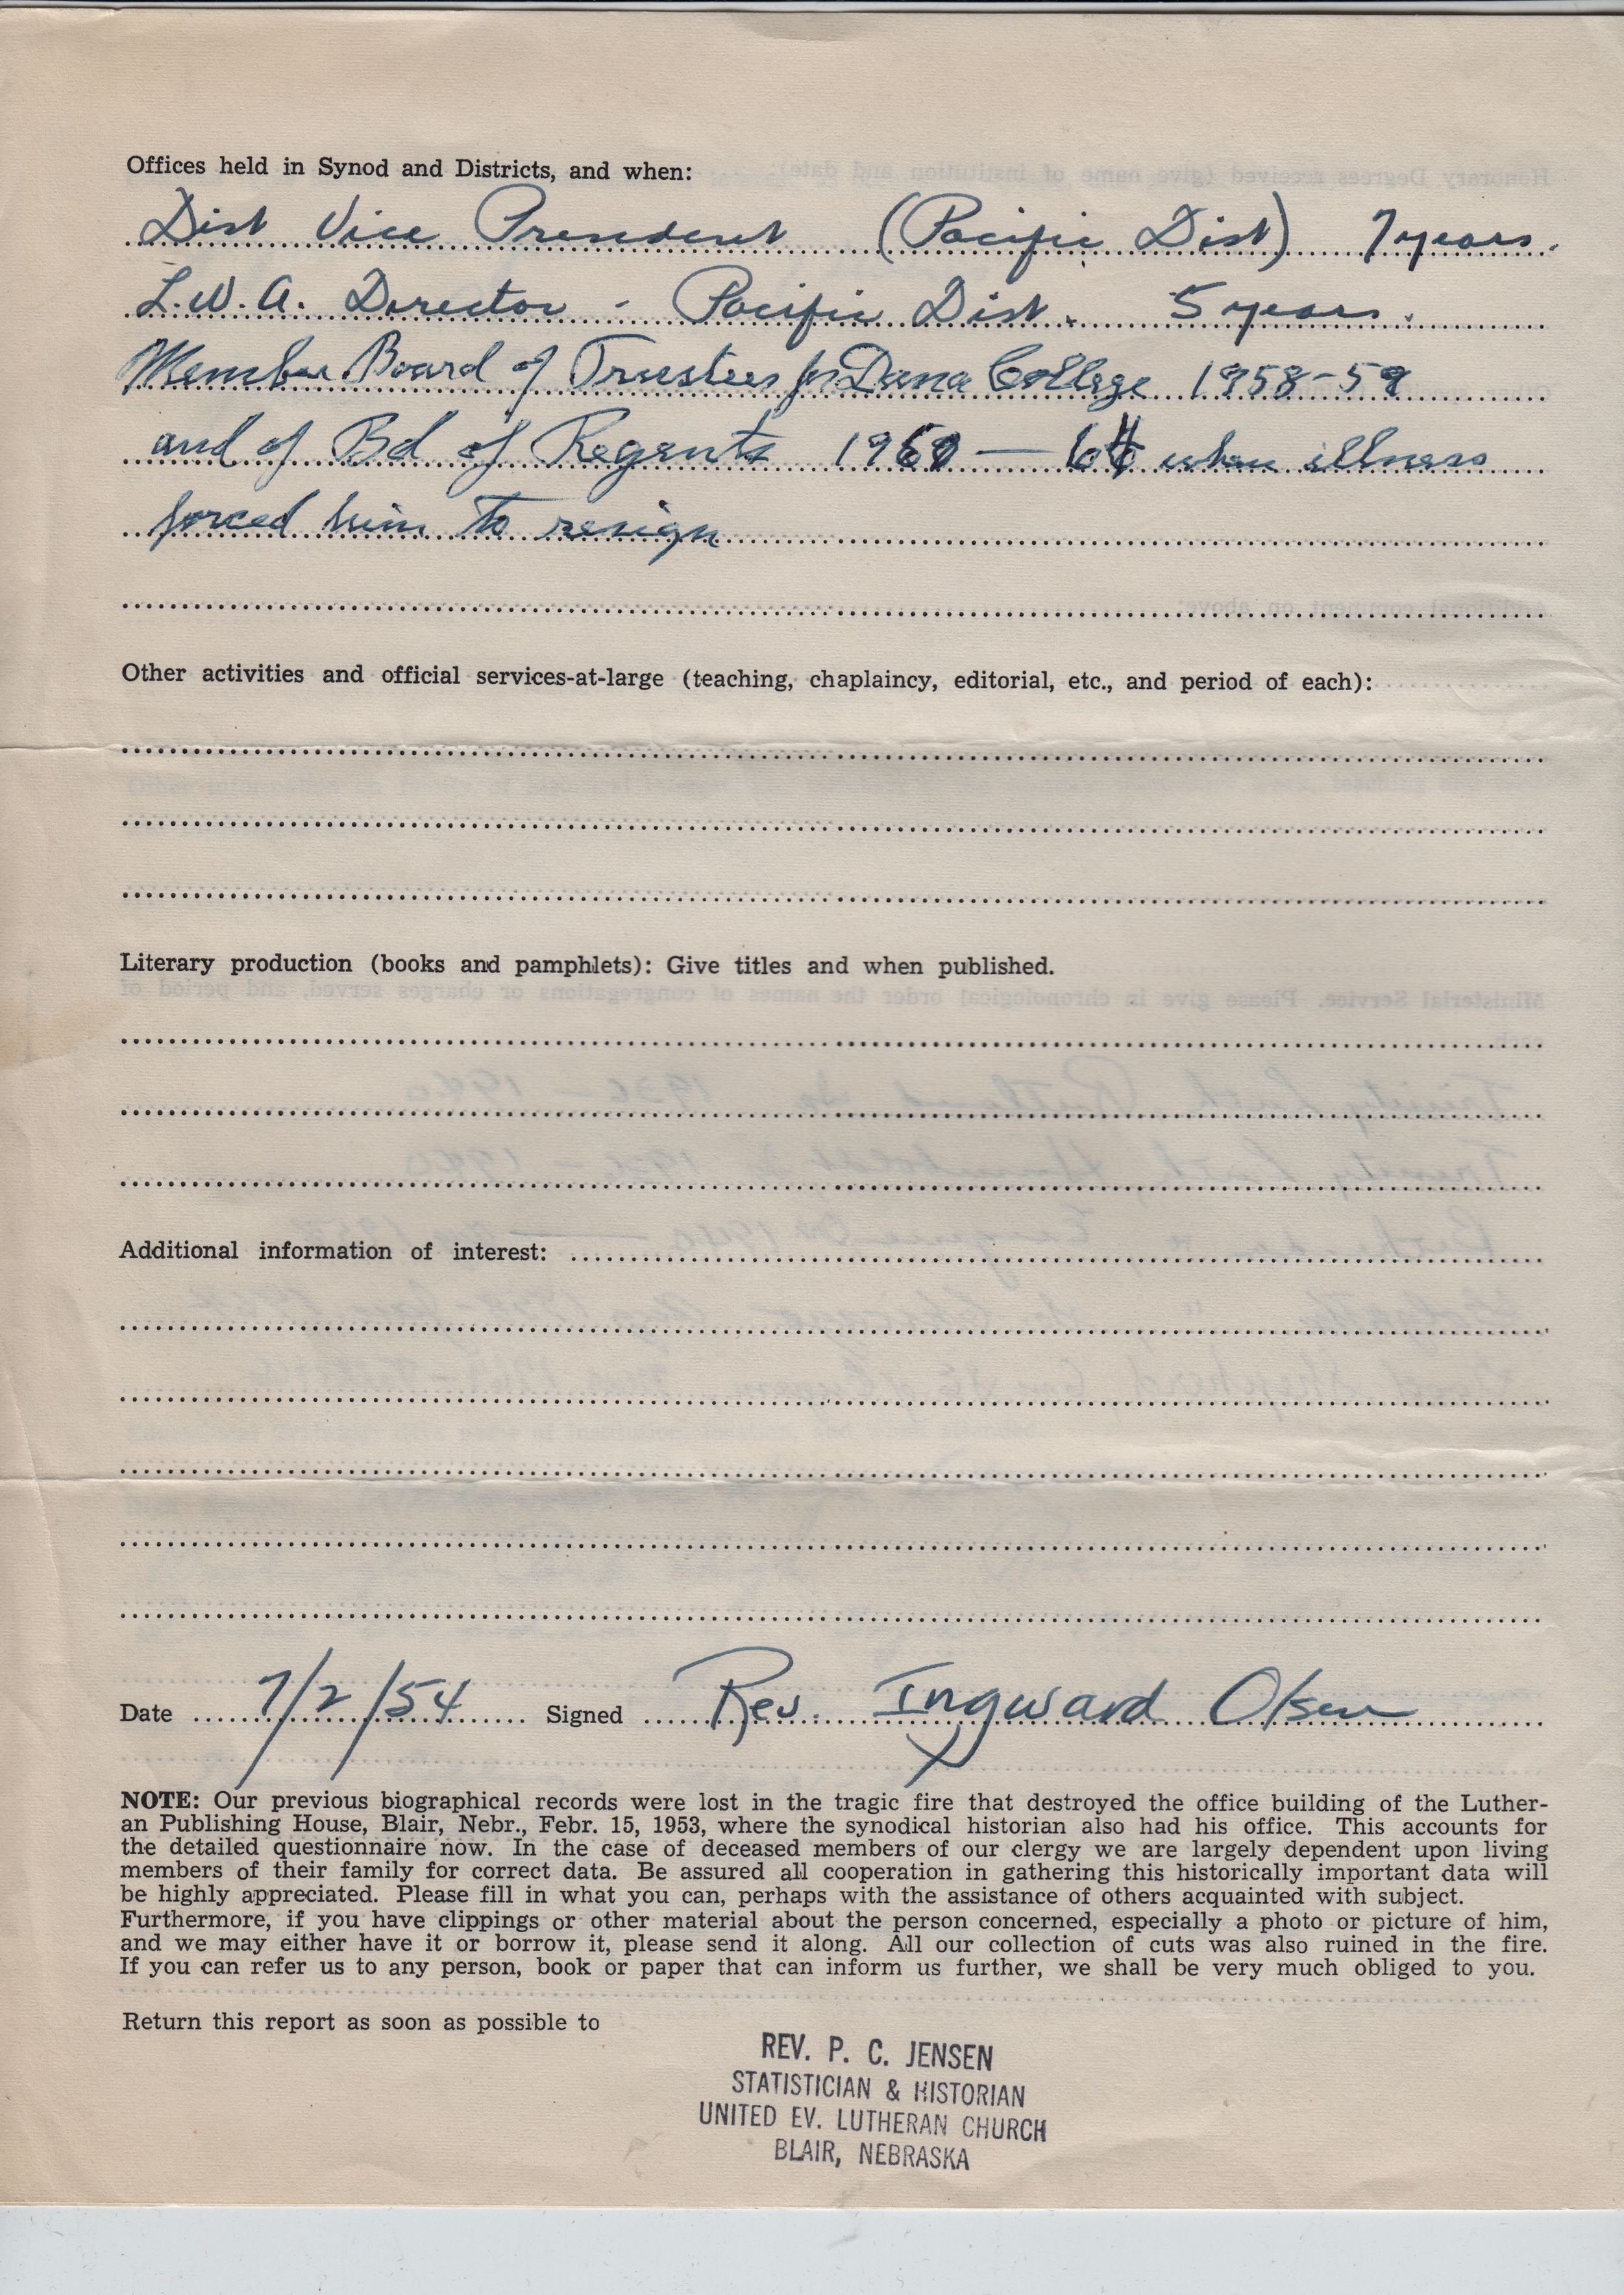 Offices held in Synod and Districts, and when:
Dist Vice President (Pacific Dist) 7 years.
L.W.A. Director - Pacific Dist. 5 years.
Member Board of Trustees for Dana College 1958-59
and of Bd of Regents when illness
forced him to resign
Other activities and official services-at-large (teaching, chaplaincy, editorial, etc., and period of each):
Literary production (books and pamphlets): Give titles and when published.
Additional information of interest:
Date 7/2/54 Signed Rev. Ingward Olsen
NOTE: Our previous biographical records were lost in the tragic fire that destroyed the office building of the Luther-
an Publishing House, Blair, Nebr., Febr. 15, 1953, where the synodical historian also had his office. This accounts for
the detailed questionnaire now. In the case of deceased members of our clergy we are largely dependent upon living
members of their family for correct data. Be assured all cooperation in gathering this historically important data will
be highly appreciated. Please fill in what you can, perhaps with the assistance of others acquainted with subject.
Furthermore, if you have clippings or other material about the person concerned, especially a photo or picture of him,
and we may either have it or borrow it, please send it along. All our collection of cuts was also ruined in the fire.
If you can refer us to any person, book or paper that can inform us further, we shall be very much obliged to you.
Return this report as soon as possible to
REV. P. C. JENSEN
STATISTICIAN & HISTORIAN
UNITED EV. LUTHERAN CHURCH
BLAIR, NEBRASKA